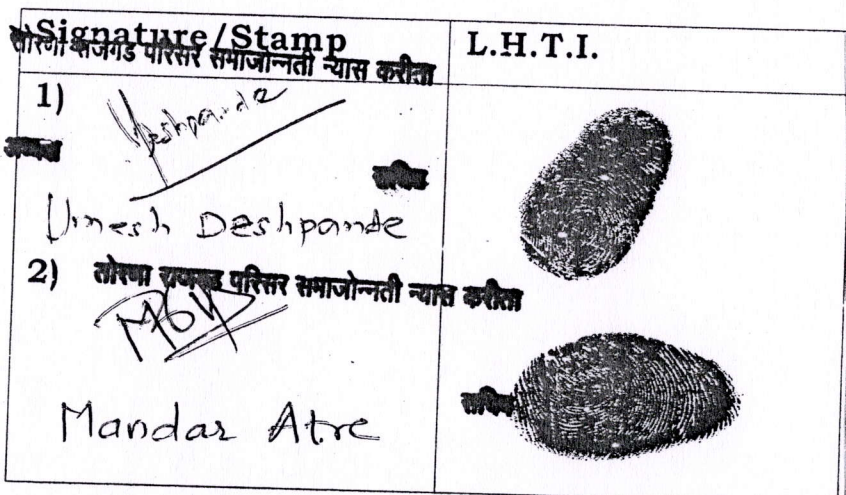 Signature/Stamp L.H.T.I.
तोरणा राजगड परिसर समाजोन्नती न्यास करीता
1)
Deshpande
अध्यक्ष सचिव
Umesh Deshpande
2) तोरणा राजगड परिसर समाजोन्नती न्यास करीता
सचिव
Mandar Atre